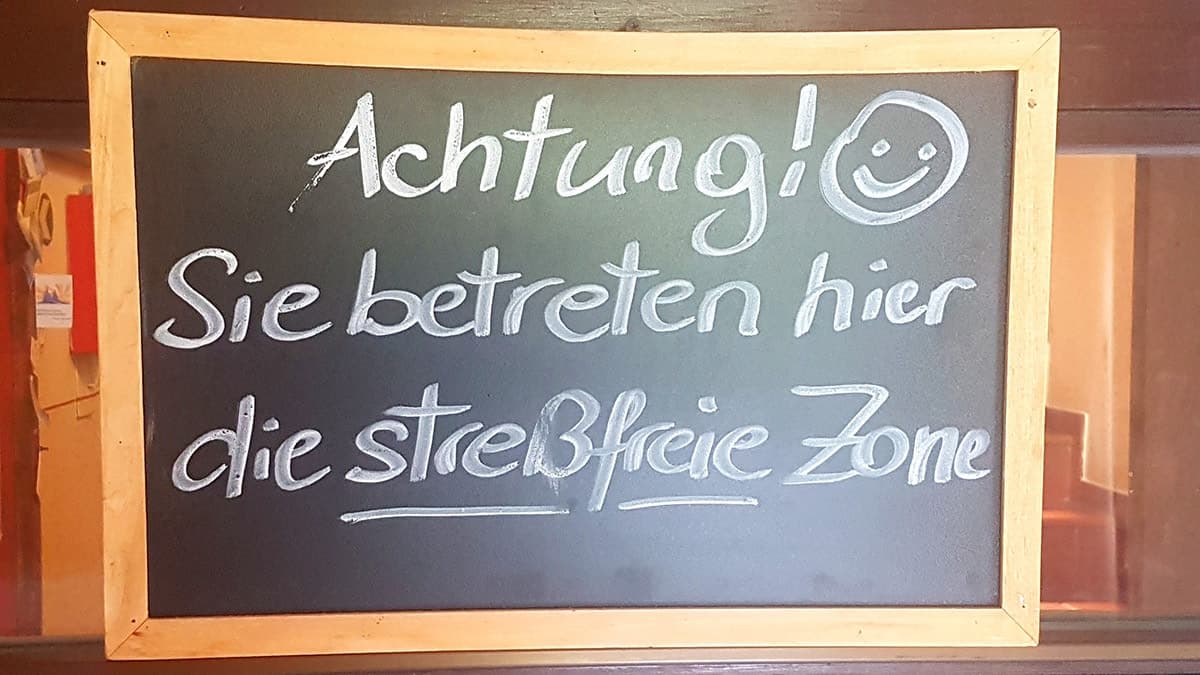 Achtung!
Sie betreten hier
die streßfreie Zone